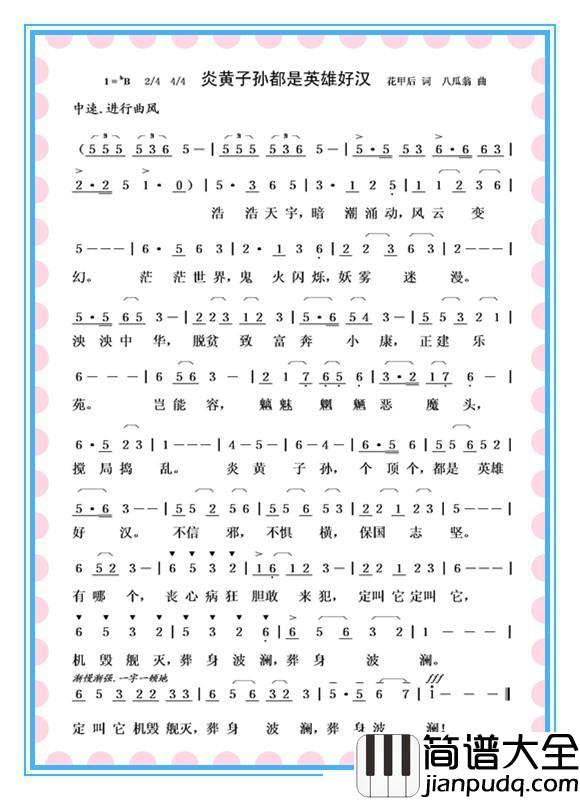 1=ᵇB 2/4 4/4 炎黄子孙都是英雄好汉 花甲后 词 八瓜翁 曲
中速.进行曲风
(555 536 5-|555 536 5-|5·5 53 6·6 63|
2·2 5 1·0)|5·3 6 5|3·1 2 5|1 1 2 3 6|
浩 浩天宇,暗 潮涌动,风云 变
5---|6·5 6 3|2·1 3 6|2 2 3 6 3|2---|
幻。 茫 茫世界,鬼 火闪烁,妖雾 迷 漫。
5·5 65 3-|223 12 3-|5·6 5 4 3|5 5 3 2 1|
泱泱中 华,脱贫 致富奔 小 康,正建 乐
6---|6 56 3-|2 1 7 65|3·2 17 6-|
苑。 岂能 容, 魑魅 魍 魉恶 魔头,
6·5 23|1---|4-5-|6-4-|6·5 1 6|55 652|
搅 局捣 乱。 炎黄 子孙, 个 顶个,都是 英雄
5·6 3---|55 2 56|56 5 3 2|22 1 23|5---|
好 汉。 不信 邪,不惧 横,保国 志 坚。
6 52 3-|6 5 3 2|16 12 3-|22 3 22 3|
有哪 个,丧心病狂 胆敢 来 犯,定叫它定叫它,
6 5 3 2|5 5 3 2 6|1 2 3 5|6---|
机 毁 舰 灭,葬 身 波 澜,葬 身 波 澜。
渐慢渐强.一字一顿地 fff
6 53 22 33|6 5 3 22 33|6·5·|5·5 6 7|1--‖
定叫它机毁舰灭,葬身 波 澜,葬身波 澜!
简谱大全
jianpudq.com